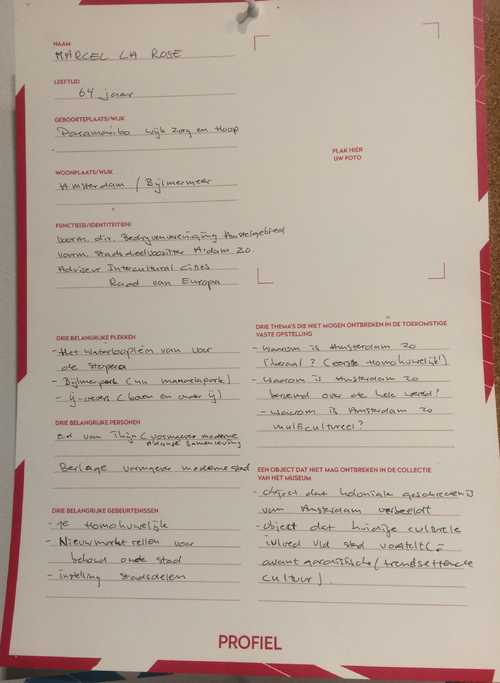 NAAM
MARCEL LA ROSE
LEEFTIJD
64 jaar
GEBOORTEPLAATS/WIJK
Paramaribo wijk Zorg en Hoop
WOONPLAATS/WIJK
Amsterdam / Bijlmermeer
FUNCTIE(S)/IDENTITEIT(EN)
voorm. dir. Bedrijvenvereniging Amstelgebied
voorm. Stadsdeelvoorzitter A'dam ZO.
Adviseur Intercultural cities
Raad van Europa
PLAK HIER
UW FOTO
DRIE BELANGRIJKE PLEKKEN
- Het Waterlooplein van voor
de Stopera
- Bijlmerpark (nu mandelapark)
- ij-oevers (boven en onder ij)
DRIE BELANGRIJKE PERSONEN
Ed van Thijn (vormgever moderne
Samenleving
Berlage vormgever moderne stad
DRIE BELANGRIJKE GEBEURTENISSEN
- 1e Homohuwelijk
- Nieuwmarkt rellen voor
behoud oude stad
- instelling stadsdelen
DRIE THEMA'S DIE NIET MOGEN ONTBREKEN IN DE TOEKOMSTIGE
VASTE OPSTELLING
- Waarom is Amsterdam zo
liberaal? (eerste homohuwelijk!)
- Waarom is Amsterdam zo
beroemd over de hele wereld?
- Waarom is Amsterdam zo
multicultureel?
EEN OBJECT DAT NIET MAG ONTBREKEN IN DE COLLECTIE
VAN HET MUSEUM
- Object dat koloniale geschiedenis
van Amsterdam verbeeldt
- Object dat huidige culturele
invloed v/d stad voorstelt (=
avant gardistische (trendsettende
cultuur)
PROFIEL